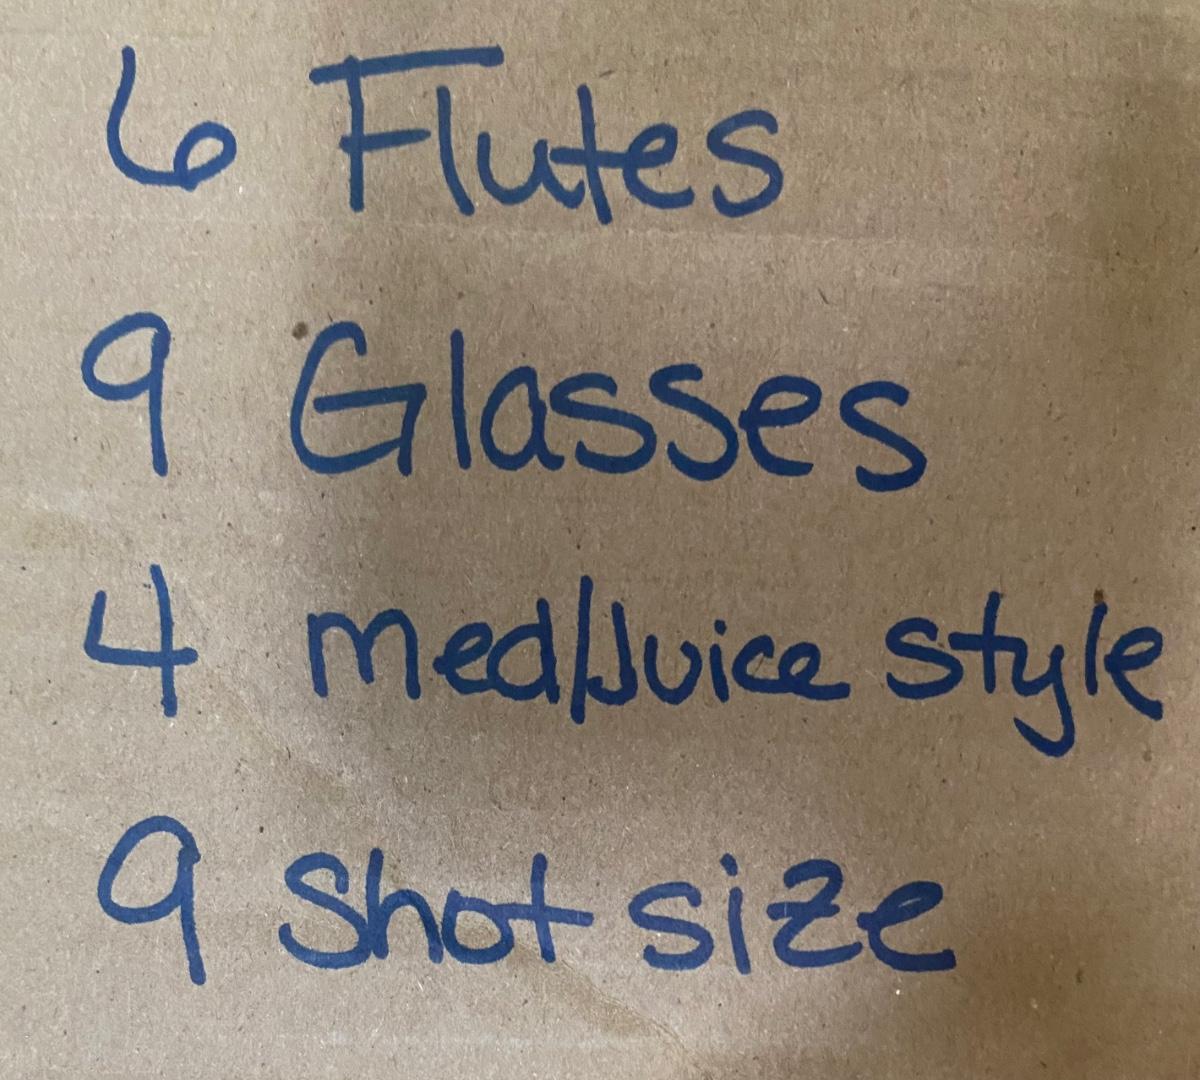 6 Flutes
9 Glasses
4 med/Juice style
9 Shot size